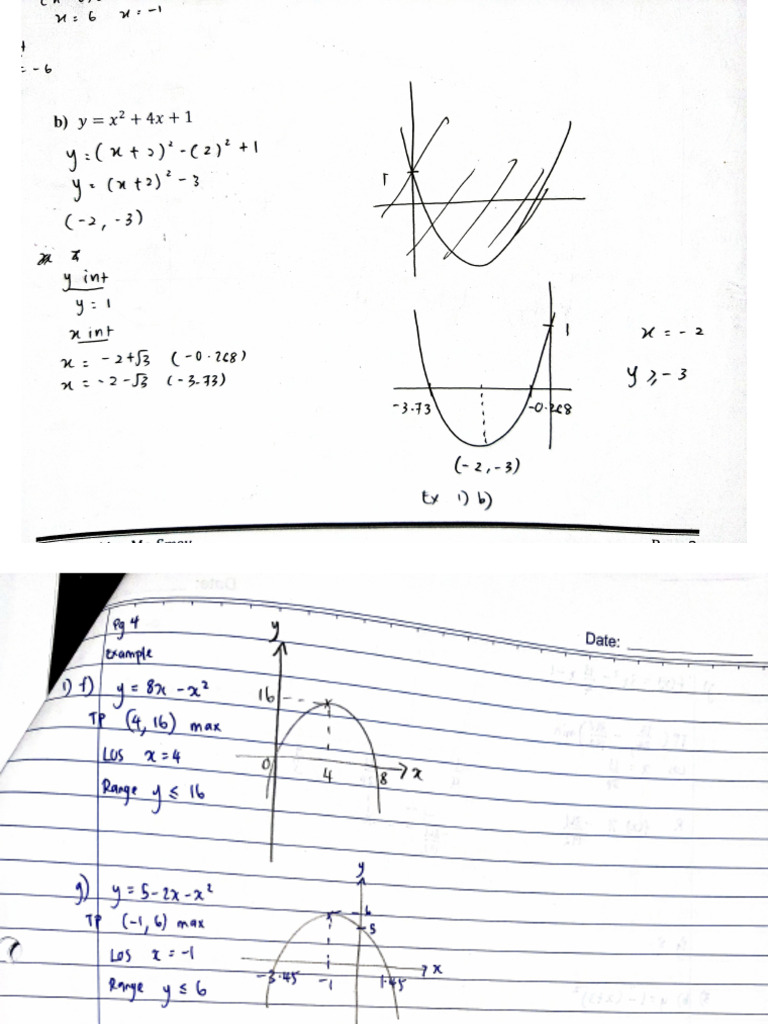 x = 6 x = -1
= -6
b) y = x² + 4x + 1
y = (x + 2)² - (2)² + 1
y = (x+2)² - 3
(-2, -3)
y int
y = 1
x int
x = -2+√3 (-0.268)
x = -2-√3 (-3.73)
1
1
x = -2
y ≥ -3
-3.73
-0.268
(-2, -3)
Ex 1) b)
Pg 4
Date:
example
1) f) y = 8x - x²
TP (4, 16) max
LOS x = 4
Range y ≤ 16
y
16
0 4 8 x
g) y = 5 - 2x - x²
TP (-1, 6) max
LOS x = -1
Range y ≤ 6
y
6
5
x
-3.45 -1 1.45